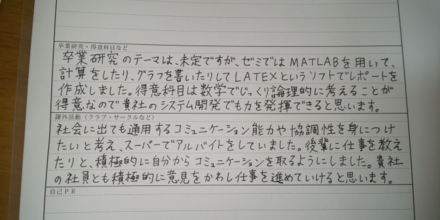 卒業研究・得意科目など
卒業研究のテーマは、未定ですが、ゼミではMATLABを用いて、
計算をしたり、グラフを書いたりしてLATEXというソフトでレポートを
作成しました。得意科目は数学でじっくり論理的に考えることが
得意なので貴社のシステム開発でも力を発揮できると思います。
課外活動（クラブ・サークルなど）
社会に出ても通用するコミュニケーション能力や協調性を身につけ
たいと考え、スーパーでアルバイトをしていました。後輩に仕事を教え
たりと、積極的に自分からコミュニケーションを取るようにしました。貴社
の社員とも積極的に意見をかわし仕事を進めていけると思います。
自己PR